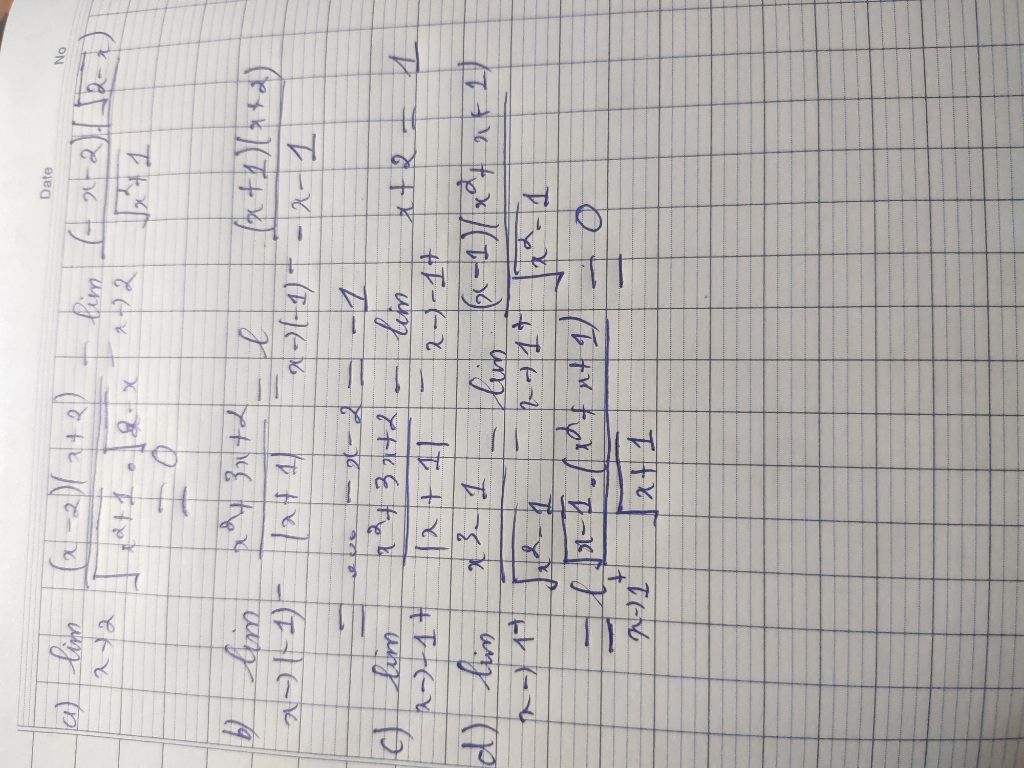 Date No
a) lim x→2 (x-2)(x+2) / √x²+1 . √2-x = lim x→2 (-x-2).(√2-x) / √x²+1
= 0
b) lim x→(-1)- x²+3x+2 / |x+1| = l x→(-1)- (x+1)(x+2) / -x-1
= -x-2 = -1
c) lim x→-1+ x²+3x+2 / |x+1| = lim x→-1+ x+2 = 1
d) lim x→1+ x3-1 / √x2-1 = lim x→1+ (x-1)(x²+x+1) / √x²-1
= l x→1+ √x-1.(x²+x+1) / √x+1 = 0